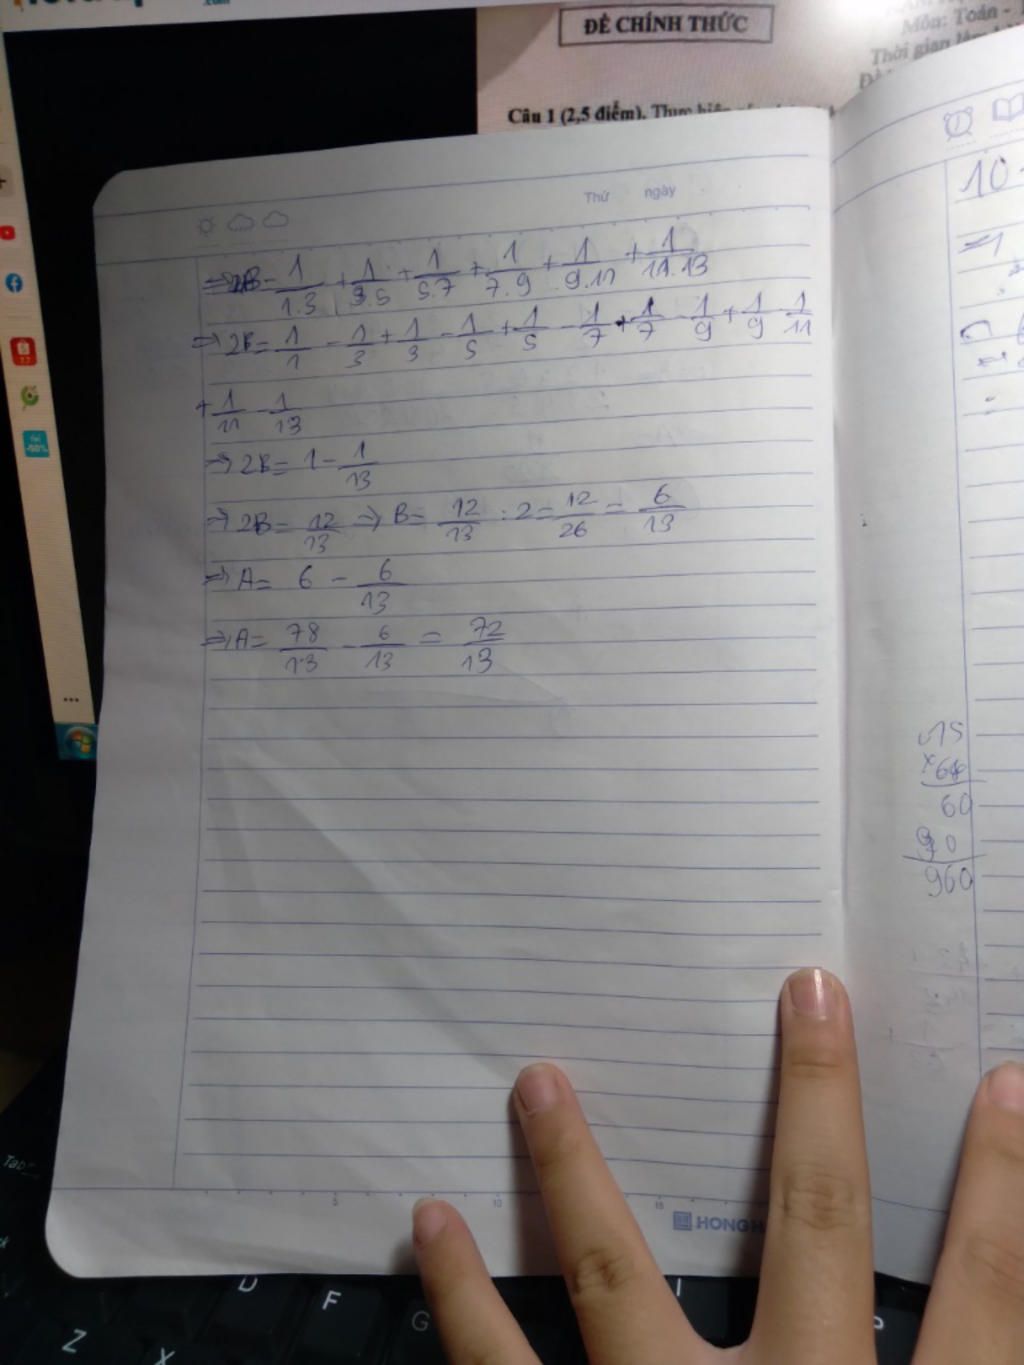 .com
ĐỀ CHÍNH THỨC
Môn: Toán -
Thời gian làm
Câu 1 (2,5 điểm). Thực hiện
Thứ ngày
=> 2B = 1/1.3 + 1/3.5 + 1/5.7 + 1/7.9 + 1/9.11 + 1/11.13
=> 2B = 1/1 - 1/3 + 1/3 - 1/5 + 1/5 - 1/7 + 1/7 - 1/9 + 1/9 - 1/11
+ 1/11 - 1/13
=> 2B = 1 - 1/13
=> 2B = 12/13 => B = 12/13 : 2 = 12/26 = 6/13
=> A = 6 - 6/13
=> A = 78/13 - 6/13 = 72/13
10
15
x 64
60
90
960
5 10 15
HONGH
Tab
D
F
G
Z
X